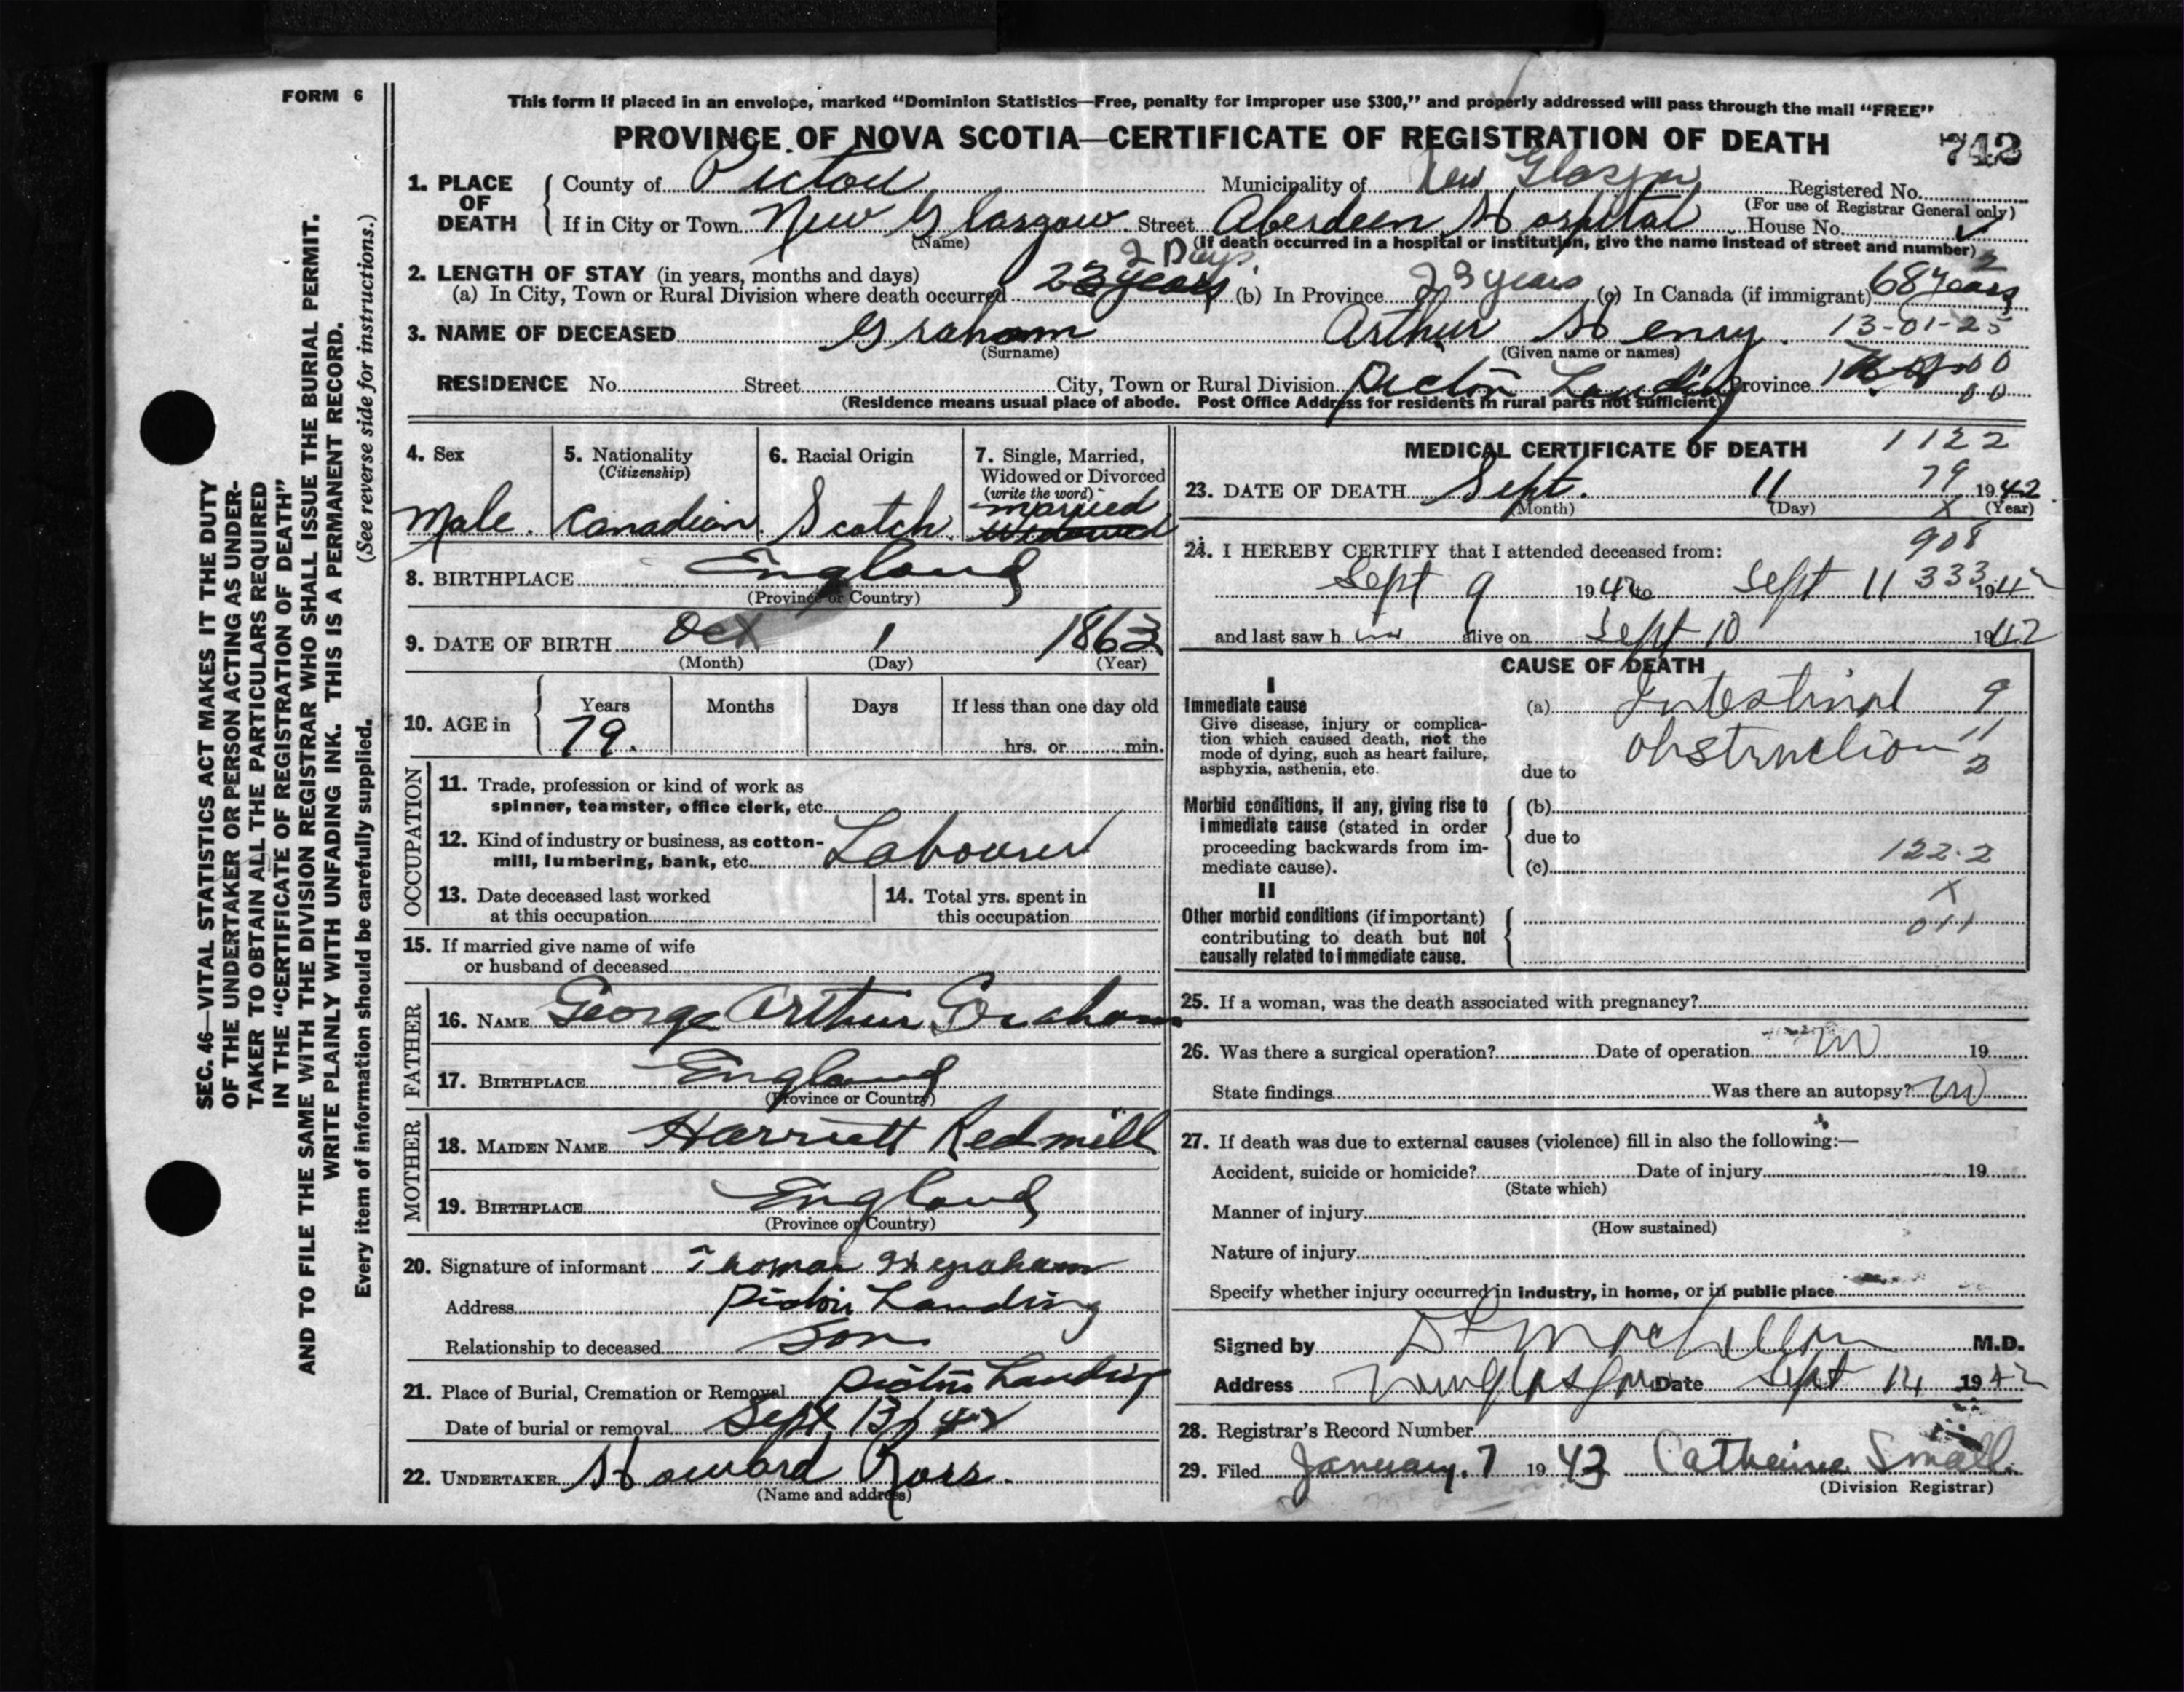 FORM 6
This form if placed in an envelope, marked “Dominion Statistics—Free, penalty for improper use $300,” and properly addressed will pass through the mail “FREE”
PROVINCE OF NOVA SCOTIA—CERTIFICATE OF REGISTRATION OF DEATH 742
1. PLACE OF DEATH County of Pictou Municipality of New Glasgow Registered No.
(For use of Registrar General only)
If in City or Town New Glasgow Street Aberdeen Hospital House No.
(Name) (If death occurred in a hospital or institution, give the name instead of street and number)
2 Days
2. LENGTH OF STAY (in years, months and days)
(a) In City, Town or Rural Division where death occurred 23 years (b) In Province 23 years (c) In Canada (if immigrant) 68 years
3. NAME OF DECEASED Graham Arthur Henry. 13-01-25
(Surname) (Given name or names)
RESIDENCE No. Street City, Town or Rural Division Pictou Landing Province
(Residence means usual place of abode. Post Office Address for residents in rural parts not sufficient) 00
4. Sex Male.
5. Nationality (Citizenship) Canadian.
6. Racial Origin Scotch.
7. Single, Married, Widowed or Divorced (write the word) married Widowed
8. BIRTHPLACE England
(Province or Country)
9. DATE OF BIRTH Oct 1 1863
(Month) (Day) (Year)
10. AGE in Years Months Days If less than one day old
79. hrs. or min.
OCCUPATION
11. Trade, profession or kind of work as
spinner, teamster, office clerk, etc.
12. Kind of industry or business, as cotton-
mill, lumbering, bank, etc. Labourer
13. Date deceased last worked
at this occupation
14. Total yrs. spent in
this occupation
15. If married give name of wife
or husband of deceased
FATHER
16. NAME George Arthur Graham
17. BIRTHPLACE England
(Province or Country)
MOTHER
18. MAIDEN NAME Harriett Redmill
19. BIRTHPLACE England
(Province or Country)
20. Signature of informant Thomas Graham
Address Pictou Landing
Relationship to deceased Son
21. Place of Burial, Cremation or Removal Pictou Landing
Date of burial or removal Sept 13/42
22. UNDERTAKER Howard Ross.
(Name and address)
MEDICAL CERTIFICATE OF DEATH 1122
79
23. DATE OF DEATH Sept. 11 1942
(Month) (Day) (Year)
X
908
24. I HEREBY CERTIFY that I attended deceased from:
333
Sept 9 1942 to Sept 11 1942
and last saw h im alive on Sept 10 1942
CAUSE OF DEATH
I
Immediate cause
Give disease, injury or complica-
tion which caused death, not the
mode of dying, such as heart failure,
asphyxia, asthenia, etc.
(a) Intestinal 9
obstruction 11
due to 3
Morbid conditions, if any, giving rise to
immediate cause (stated in order
proceeding backwards from im-
mediate cause).
(b)
due to
122.2
(c)
X
II
Other morbid conditions (if important)
contributing to death but not
causally related to immediate cause.
011
25. If a woman, was the death associated with pregnancy?
26. Was there a surgical operation? Date of operation no 19
State findings Was there an autopsy? no
27. If death was due to external causes (violence) fill in also the following:—
Accident, suicide or homicide? Date of injury 19
(State which)
Manner of injury
(How sustained)
Nature of injury
Specify whether injury occurred in industry, in home, or in public place
Signed by M.D.
Address New Glasgow Date Sept 14 1942
28. Registrar's Record Number
29. Filed January. 7 1943 Catherine Small
(Division Registrar)
SEC. 46—VITAL STATISTICS ACT MAKES IT THE DUTY
OF THE UNDERTAKER OR PERSON ACTING AS UNDER-
TAKER TO OBTAIN ALL THE PARTICULARS REQUIRED
IN THE “CERTIFICATE OF REGISTRATION OF DEATH”
AND TO FILE THE SAME WITH THE DIVISION REGISTRAR WHO SHALL ISSUE THE BURIAL PERMIT.
WRITE PLAINLY WITH UNFADING INK. THIS IS A PERMANENT RECORD.
Every item of information should be carefully supplied. (See reverse side for instructions.)